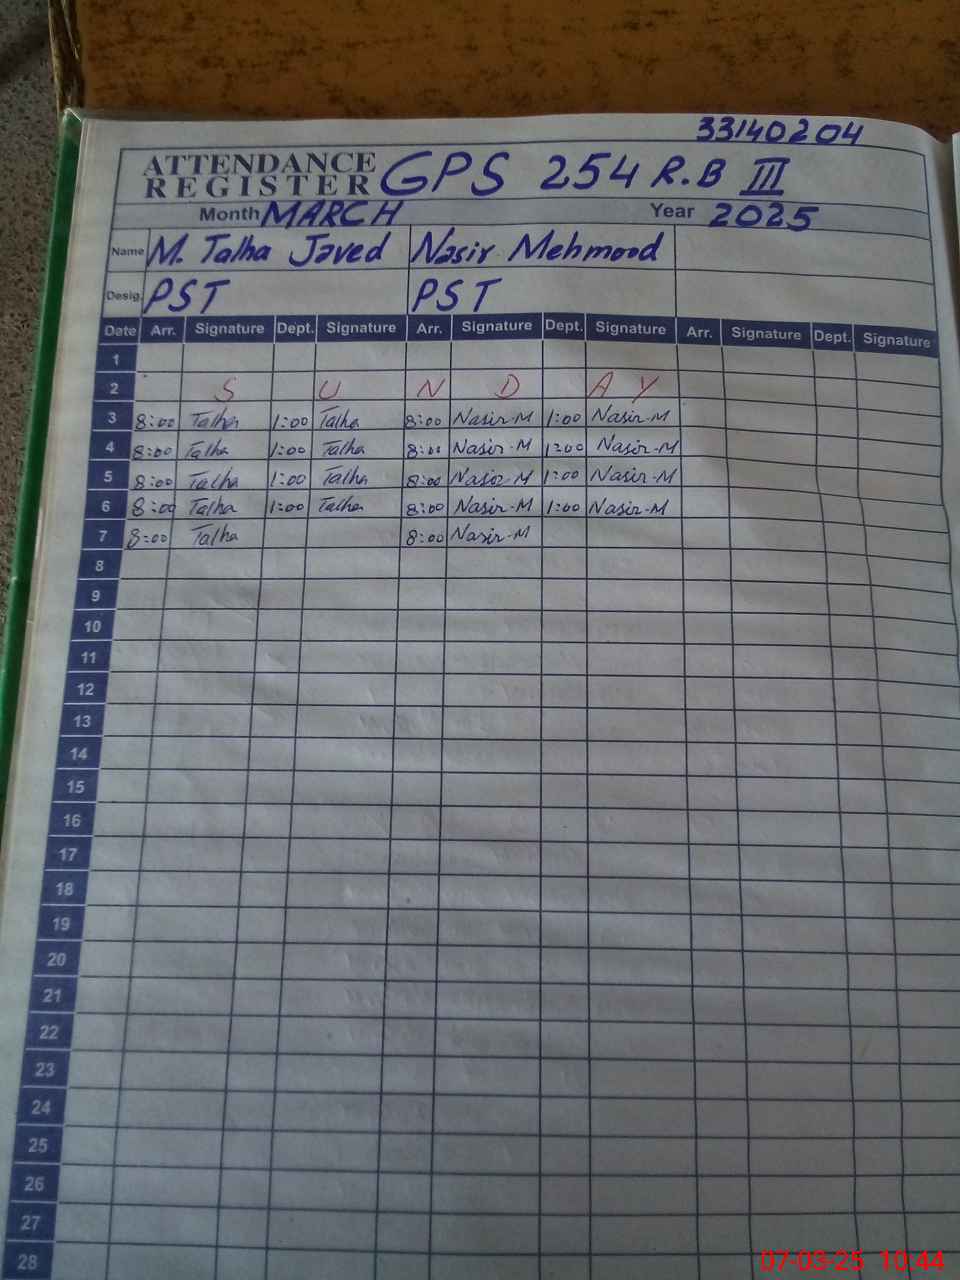 33140204
ATTENDANCE REGISTER GPS 254 R.B III
Month MARCH Year 2025
Name M. Talha Javed Nasir Mehmood
Desig. PST PST
Date Arr. Signature Dept. Signature Arr. Signature Dept. Signature Arr. Signature Dept. Signature
1
2 S U N D A Y
3 8:00 Talha 1:00 Talha 8:00 Nasir-M 1:00 Nasir-M
4 8:00 Talha 1:00 Talha 8:00 Nasir-M 1:00 Nasir-M
5 8:00 Talha 1:00 Talha 8:00 Nasir M 1:00 Nasir-M
6 8:00 Talha 1:00 Talha 8:00 Nasir-M 1:00 Nasir-M
7 8:00 Talha 8:00 Nasir-M
8
9
10
11
12
13
14
15
16
17
18
19
20
21
22
23
24
25
26
27
28
07-03-25 10:44